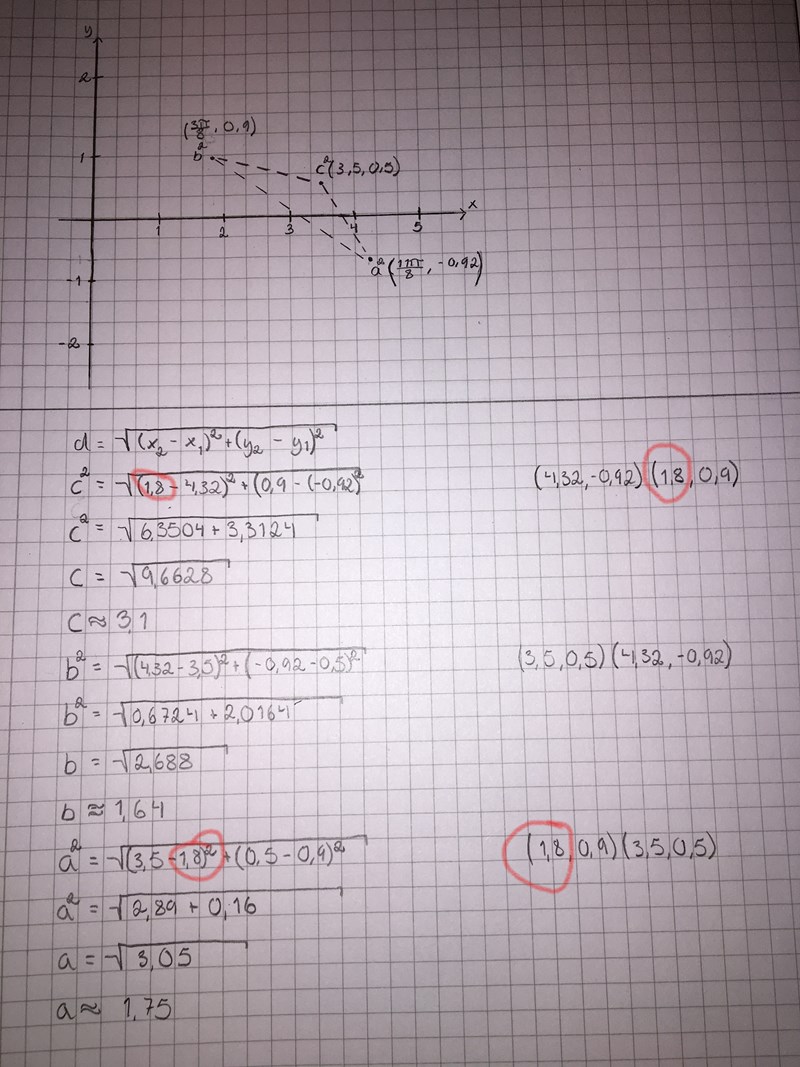 y
2
(3π/8, 0,9)
1
b²
c²(3,5, 0,5)
x
1 2 3 4 5
a²(11π/8, -0,92)
-1
-2
d = √(x₂ - x₁)² + (y₂ - y₁)²
c² = √(1,8 - 4,32)² + (0,9 - (-0,92)² (4,32, -0,92) (1,8, 0,9)
c² = √6,3504 + 3,3124
c = √9,6628
c ≈ 3,1
b² = √(4,32 - 3,5)² + (-0,92 - 0,5)² (3,5, 0,5) (4,32, -0,92)
b² = √0,6724 + 2,0164
b = √2,688
b ≈ 1,64
a² = √(3,5 - 1,8)² + (0,5 - 0,9)² (1,8, 0,9) (3,5, 0,5)
a² = √2,89 + 0,16
a = √3,05
a ≈ 1,75